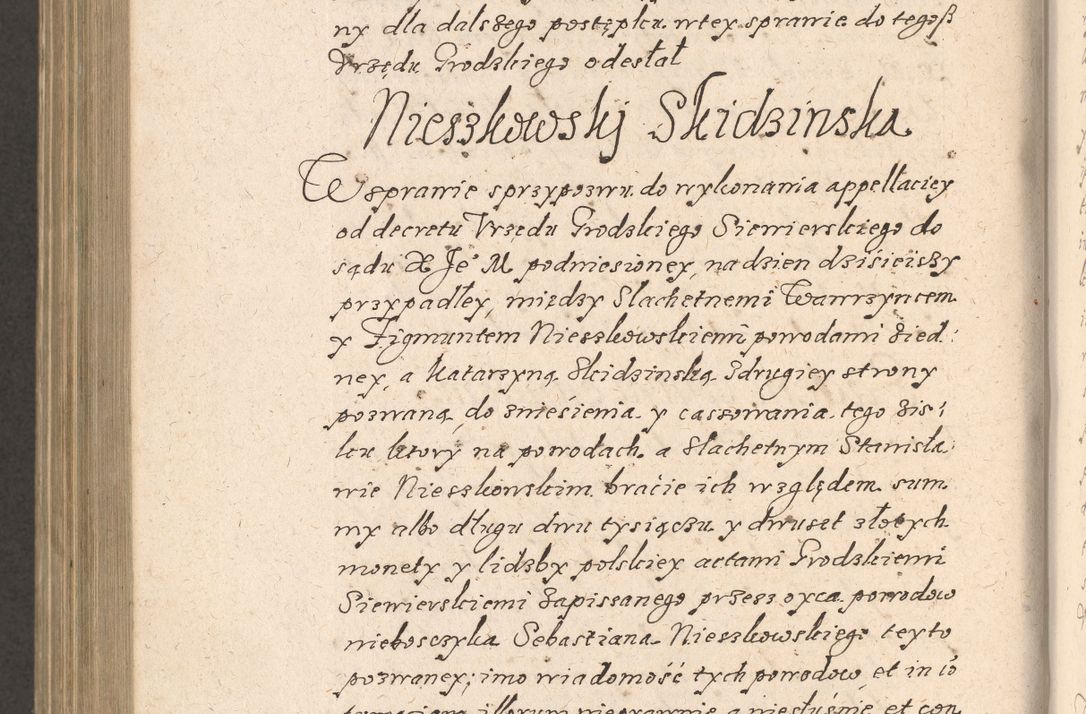 ny dla dalszego postępku wtey sprawie do tegosz
Vrzędu Grodzkiego odesłał
Nieszkowskj Skidzinska
W sprawie sprzypozwu do wykonania appellaciey
od decretu Vrzędu Grodzkiego Siewierskiego do
sądu X Je° M podniesioney, na dzien dzisieiszy
przypadłey, między Slachetnemi Wawrzyncem
y Zigmuntem Nieszkowskiemi powodami zied:
ney, a Katarzyną Skidzinską zdrugiey strony
pozwaną, do zniesienia y cassowania tego zis:
ku ktory na powodach a Slachetnym Stanisła
wie Nieszkowskim bracie ich względem sum
my albo długu dwu tysiączu y dwuset złotych
monety y lidzby polskiey actami Grodzkiemi
Siewierskiemi zapissanego przesz oyca powodow
nieboszczyka Sebastiana Nieszkowskiego teyto
pozwaney; imo wiadomość tych powodow et in co
illorum nieprawnie a niesłusznie et con